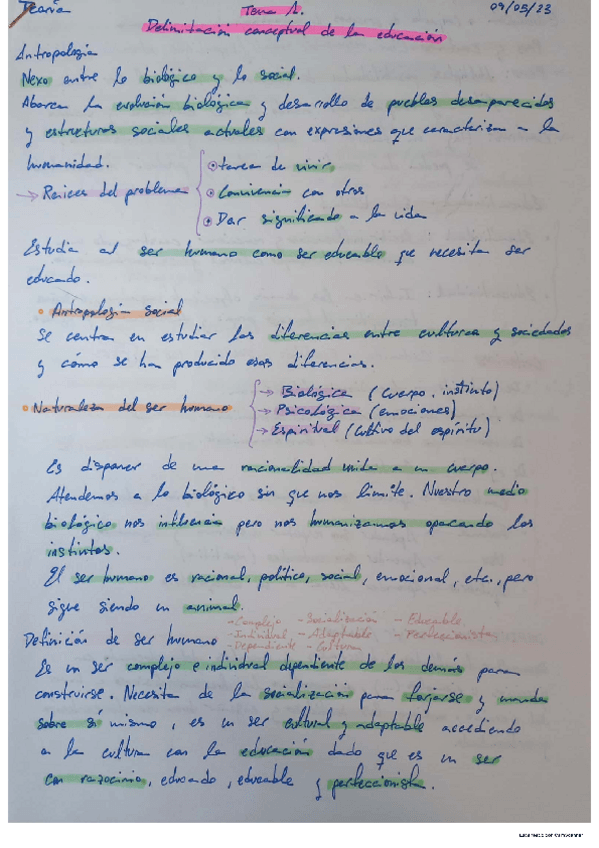 Teoría Tema 1. 09/05/23
Delimitación conceptual de la educación
Antropología
Nexo entre lo biológico y lo social.
Aborca la evolución biológica y desarrollo de pueblos desaparecidos
y estructuras sociales actuales con expresiones que caracterizan a la
humanidad.
→ Raices del problema
tarea de vivir
Convivencia con otros
Dar significado a la vida
Estudia al ser humano como ser educable que necesita ser
educado.
• Antropología social
Se centra en estudiar las diferencias entre culturas y sociedades
y cómo se han producido esas diferencias.
• Naturaleza del ser humano
→ Biológica (cuerpo. instinto)
→ Psicológica (emociones)
→ Espiritual (cultivo del espíritu)
Es disponer de una racionalidad unida a un cuerpo.
Atendemos a lo biológico sin que nos limite. Nuestro medio
biológico nos influencia pero nos humanizamos opacando los
instintos.
El ser humano es racional, político, social, emocional, etc., pero
sigue siendo un animal.
- Complejo - Socialización - Educable
- Individual - Adaptable - Perfeccionista
- Dependiente - Cultura
Definición de ser humano
Es un ser complejo e individual dependiente de los demás para
construirse. Necesita de la socialización para forjarse y
sobre sí mismo, es un ser cultural y adaptable accediendo
a la cultura con la educación dado que es un ser
con razocinio, educando, educable y perfeccionista.